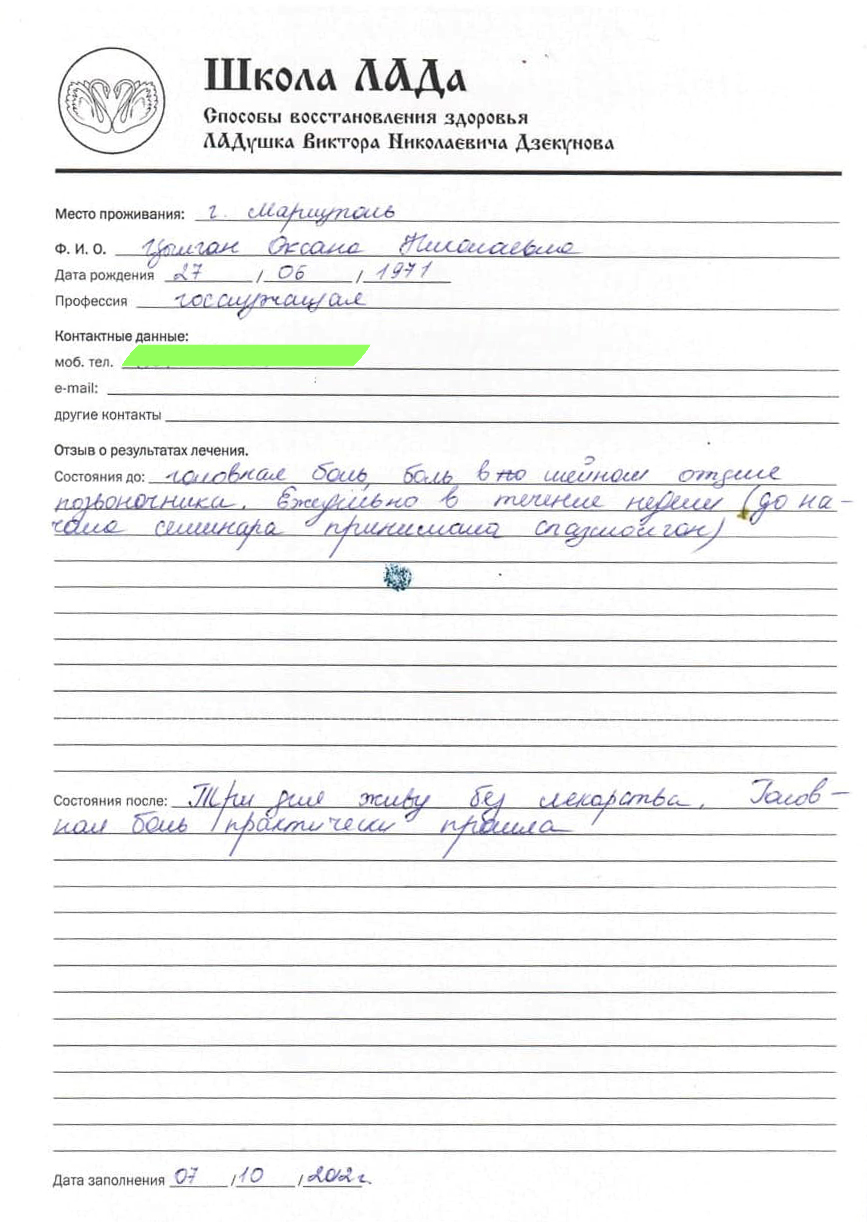 Школа ЛАДа
Способы восстановления здоровья
ЛАДушка Виктора Николаевича Дзекунова
Место проживания: г. Мариуполь
Ф. И. О. Цымган Оксана Николаевна
Дата рождения 27 / 06 / 1971
Профессия госслужащая
Контактные данные:
моб. тел.
e-mail:
другие контакты
Отзыв о результатах лечения.
Состояния до: головная боль, боль в по шейном отделе
позвоночника. Ежедневно в течение недели (до на-
чала семинара принимала спазмолгон)
Состояния после: Три дня живу без лекарства. Голов-
ная боль практически прошла
Дата заполнения 07 / 10 / 2012г.